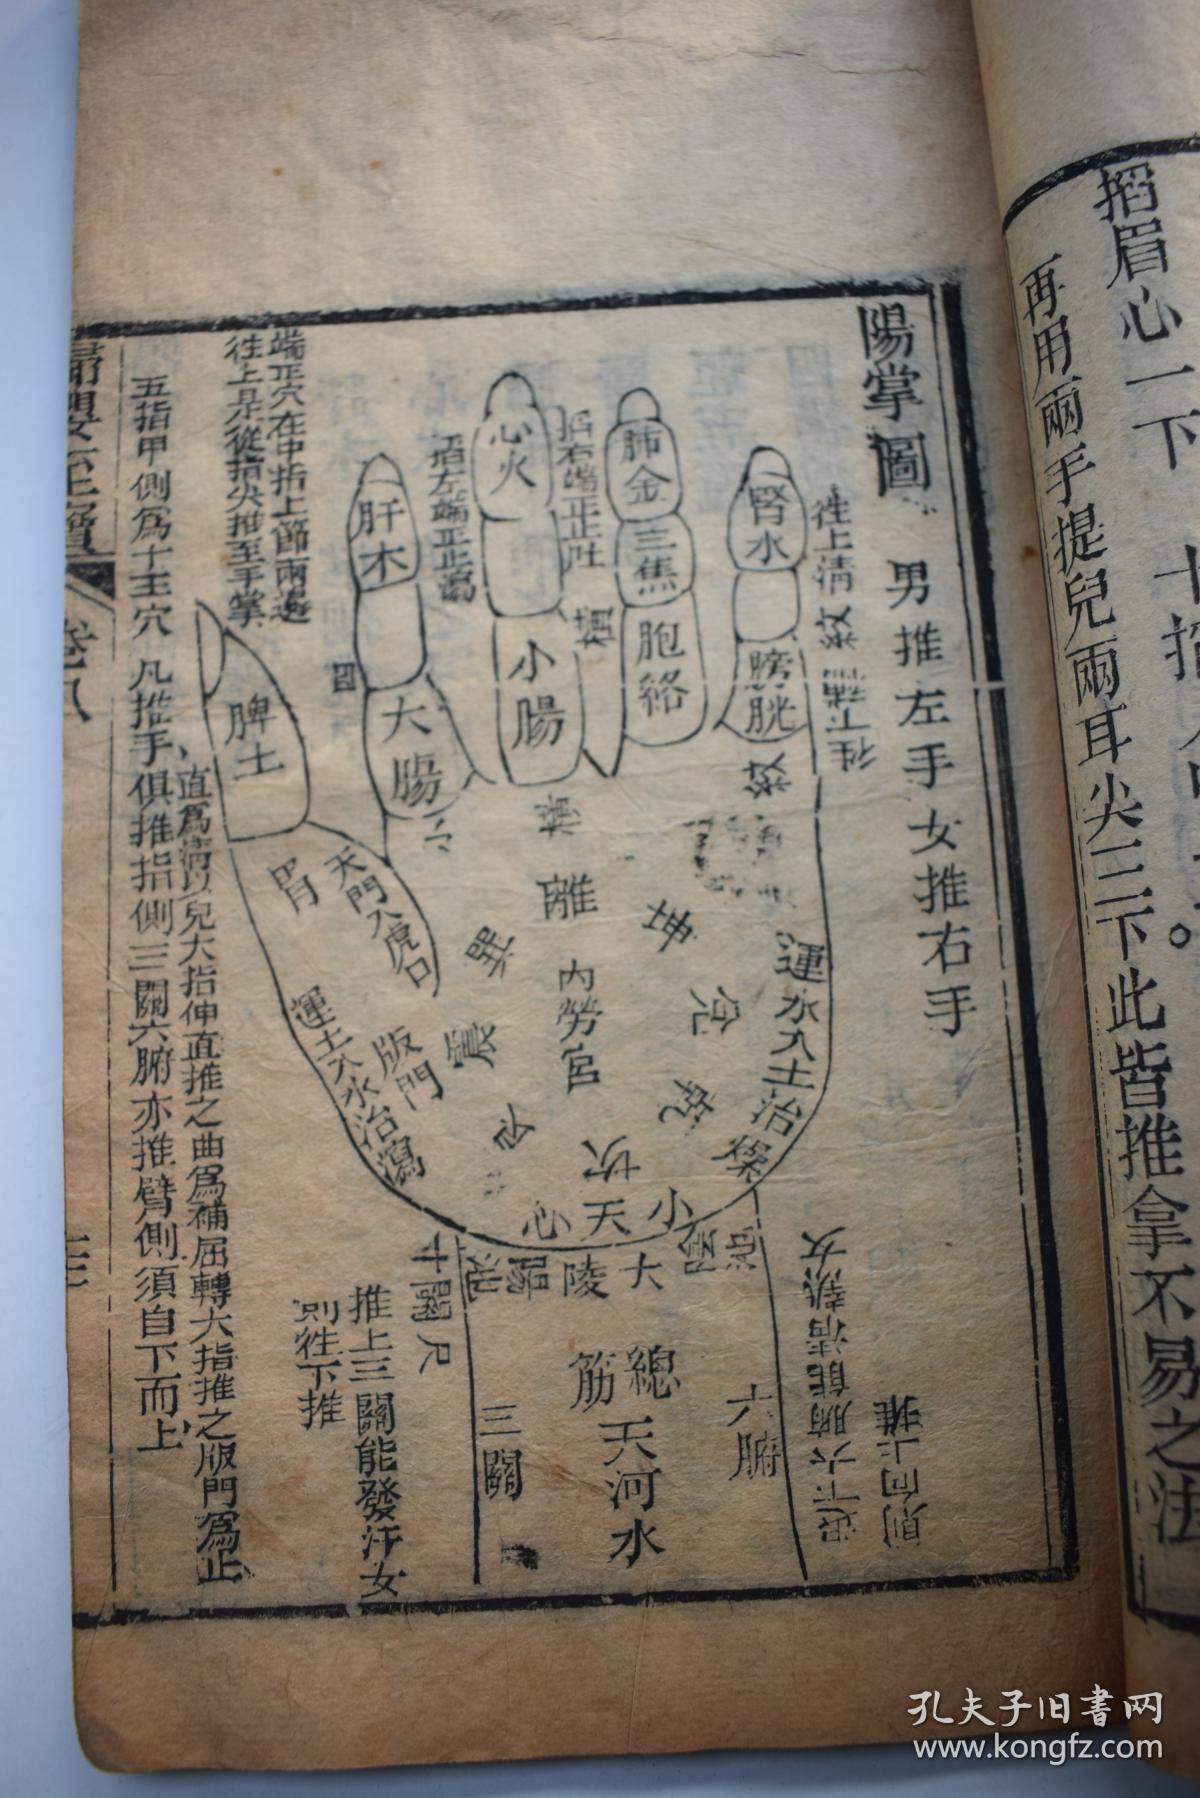 掐眉心一下
再用兩手提兒兩耳尖三下此皆推拿不易之法
陽掌圖
男推左手女推右手
往上清
腎水
膀胱
肺金
三焦
胞絡
掐右端正止吐
心火
小腸
掐左端正止瀉
肝木
大腸
四
橫
橫
紋
脾土
胃
天門入虎口
版門
運土入水治瀉
運水入土治燥
離
坤
兌
乾
坎
艮
震
巽
內勞宮
小天心
大陵
陽池
陰池
總筋
天河水
寸關尺
三關
六腑
退下六腑能清熱女
則向上推
推上三關能發汗女
則往下推
端正穴在中指上節兩邊
往上是從指尖推至手掌
直為清以兒大指伸直推之曲為補屈轉大指推之版門為止
五指甲側為十王穴凡推手俱推指側三關六腑亦推臂側須自下而上
孔夫子旧书网
www.kongfz.com